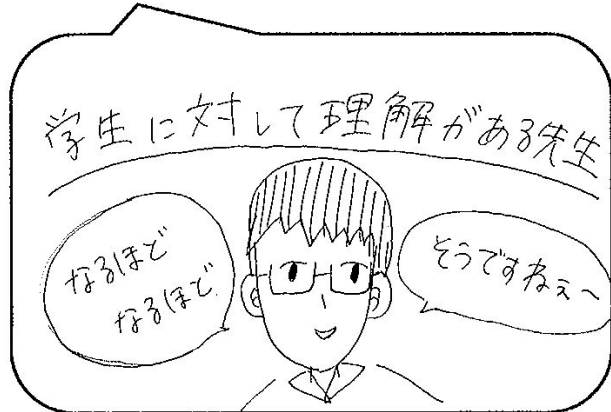 学生に対して理解がある先生
なるほど
なるほど
そうですねぇ～